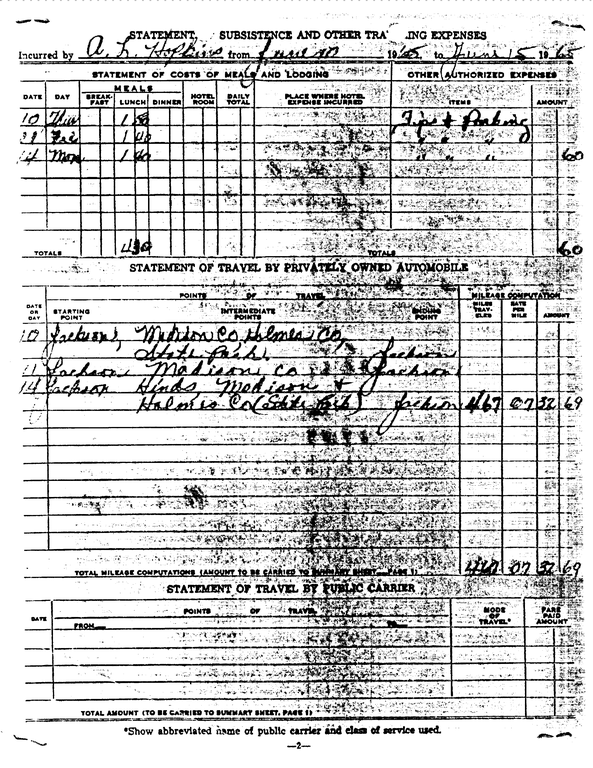 STATEMENT, SUBSISTENCE AND OTHER TRA ING EXPENSES
Incurred by A. L. Hopkins from June 10 1965 to June 15 1965
STATEMENT OF COSTS OF MEALS AND LODGING OTHER AUTHORIZED EXPENSES
DATE DAY MEALS BREAK-FAST LUNCH DINNER HOTEL ROOM DAILY TOTAL PLACE WHERE HOTEL EXPENSE INCURRED ITEMS AMOUNT
10 Thur 1 50 & Parking
11 Fri 1 40 " " "
14 Mon 1 40 " " " 60
TOTALS 4 30 TOTALS 60
STATEMENT OF TRAVEL BY PRIVATELY OWNED AUTOMOBILE
DATE OR DAY POINTS OF TRAVEL MILEAGE COMPUTATION
STARTING POINT INTERMEDIATE POINTS ENDING POINT MILES TRAV-ELED RATE PER MILE AMOUNT
10 Jackson, Madison Co, Holmes Co,
State Park Jackson
11 Jackson Madison Co Jackson
14 Jackson Hinds Madison &
Holmes Co (State Park) Jackson 467 07 32 69
TOTAL MILEAGE COMPUTATIONS (AMOUNT TO BE CARRIED TO SUMMARY SHEET, PAGE 1) 467 07 32 69
STATEMENT OF TRAVEL BY PUBLIC CARRIER
DATE POINTS OF TRAVEL MODE OF TRAVEL* FARE PAID AMOUNT
FROM TO
TOTAL AMOUNT (TO BE CARRIED TO SUMMARY SHEET, PAGE 1)
*Show abbreviated name of public carrier and class of service used.
—2—